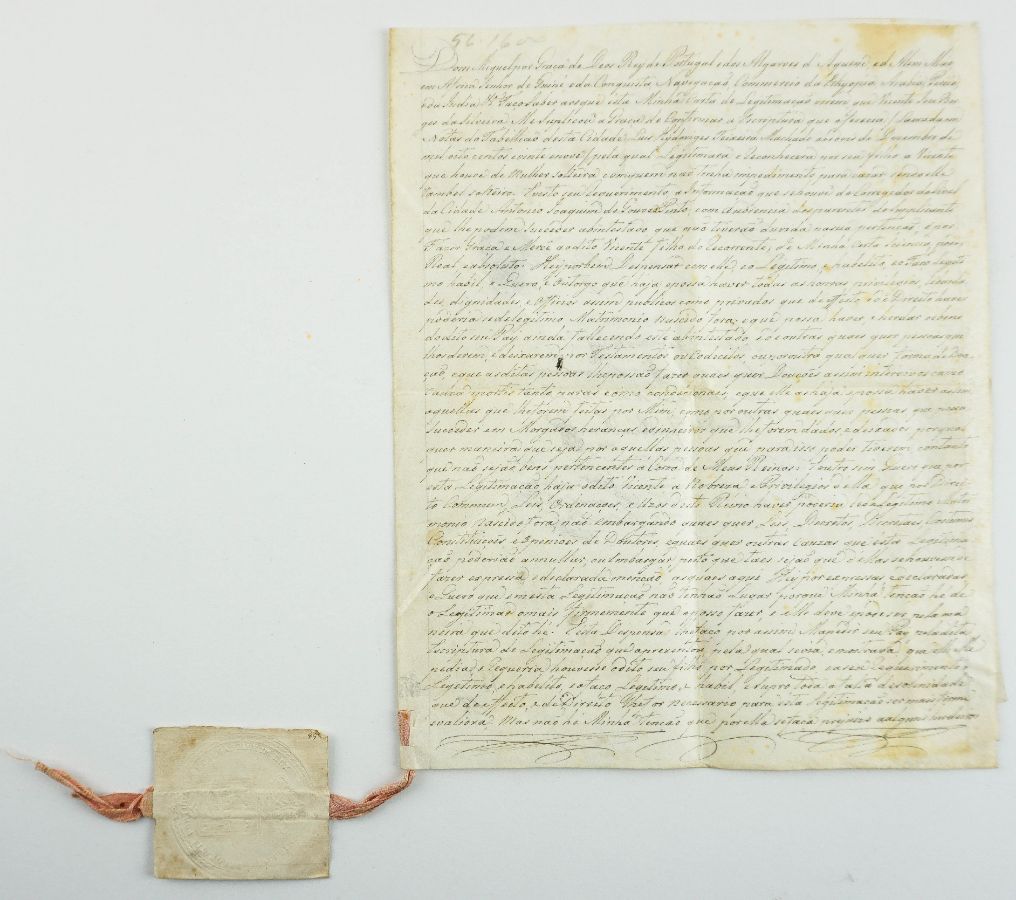 56 160
Dom Miguel por Graça de Deos Rey de Portugal e dos Algarves d'Aquem, e d'Alem Mar
em Africa Senhor de Guiné e da Conquista Navegação, Commercio da Ethyopia, Arabia, Percia,
e da India &ª Faço saber aos que esta Minha Carta de Legitimação virem que Vicente
da Silveira Me Suplicou a Graça de Confirmar a Escriptura que offerecia / Lavrada em
Notas do Tabellião desta Cidade Teixeira Machado de Dezembro de
mil oito centos vinte e nove / pela qual Legitimara e Reconhecera por seu filho a Vicente
que houve de Mulher solteira com quem não tinha impedimento para cazar sendo elle
tambem solteiro. Visto seu Requerimento, e Informação que se houve do Corregedor do Civel
da Cidade Antonio Joaquim de Gouvea Pinto, com Audiencia dos parentes do Suplicante
que lhe podem Succeder abintestado que não tiverão duvida nesta pertenção, e por
Fazer Graça e Mercê ao dito Vicente filho do Recorrente, de Minha Certa Sciencia, poder
Real, e absoluto: Hei por bem Dispensar com elle, e o Legitimo, e habelito, e o Faço Legiti
mo habil, e Quero, e Outorgo que haja, e possa haver todas as honras privilegios, liberda
des, dignidades, e Officios assim publicos como privados que de feito, e de Direito haver
poderia se de legitimo Matrimonio Nascido fora; e que possa haver, e herdar os bens
do dito seu Pay, ainda fallecendo este abintestado, so outras quaes quer pessoas que
lhos derem, e deixarem por Testamentos ou Codecilos, ou por outra qual quer forma de Doa
ção, e que as ditas pessoas lhe possão fazer quaes quer Doações assim intervivos como
cauza mortes tanto puras como condicionais, e que elle as haja, e possa haver assim
aquellas que lhe forem feitas por Mim, como por outras quaes quer pessoas, e para
succeder em Morgados heranças, que lhe forem dados, e deixados por qual
quer maneira que seja por aquellas pessoas que para isso poder tiverem, contanto
que não sejão bens pertencentes a Coroa de Meus Reinos: E outro sim Quero que por
esta Legitimação haja o dito Vicente a Nobreza e Privilegios della que por Direi
to Commum, Leis, Ordenações, e Uzos deste Reino haver poderia se de Legitimo Matri
monio Nascido fora, não embargando quaes quer Leis, Decretos, Direitos Canones
Constituições, e Openiões de Doutores, e quaes quer outras Cauzas que esta Legitima
ção poderião annullar, ou embargar, posto que taes sejão que dellas se houvesse de
fazer expressa, e declarada menção, as quaes aqui Hey por expressas, e declaradas,
e Quero que em esta Legitimação não tenhão Lugar porque Minha tenção he de
o Legitimar o mais firmemente que o posso fazer, e elle deve, e pode ser, pela ma
neira que dito he. Esta Dispensa lhe faço por assim Mandar seu Pay pela dita
Escriptura de Legitimação que aprezentou, pela qual seria, e mostrava, que elle Me
pedia, e requeria houvesse o dito seu filho por Legitimado, e a seu Requerimento
Legitimo, e habelito, e faço Legitimo, e habil, e supro toda a falta de solenidade
que de feito, e de Direito lhe for necessario para esta Legitimação ser mais firme
e valioza. Mas não he Minha tenção que por ella se faça prejuizo a alguns herdeiros